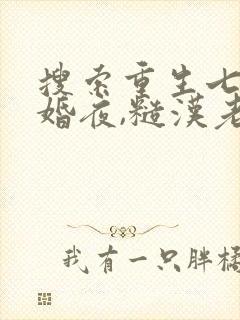 搜索重生七
婚夜,糙漢老
我有一只胖橘